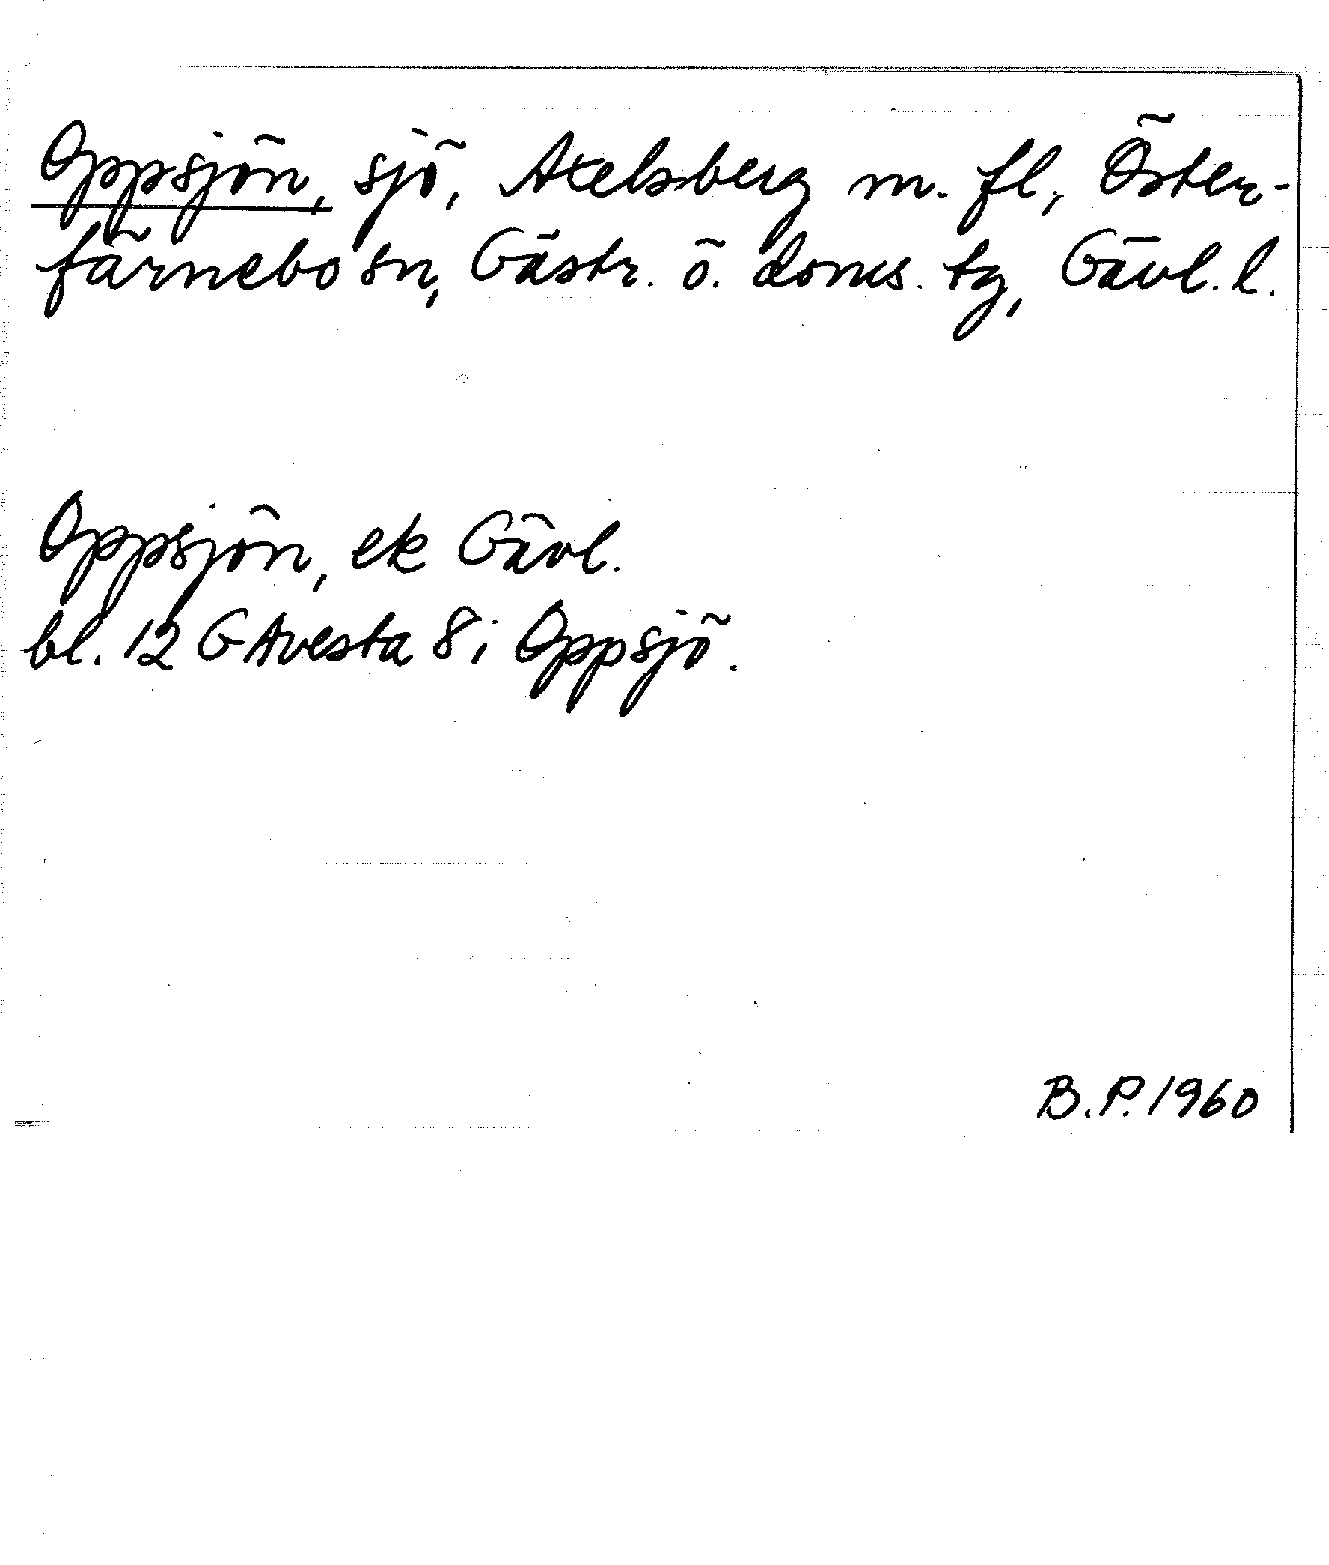 Oppsjön, sjö, Axelsberg m. fl, Öster-
färnebo sn, Gästr. ö. doms. tg, Gävl. l.
Oppsjön, ek Gävl.
bl. 12 G Avesta 8 i Oppsjö.
B.P. 1960